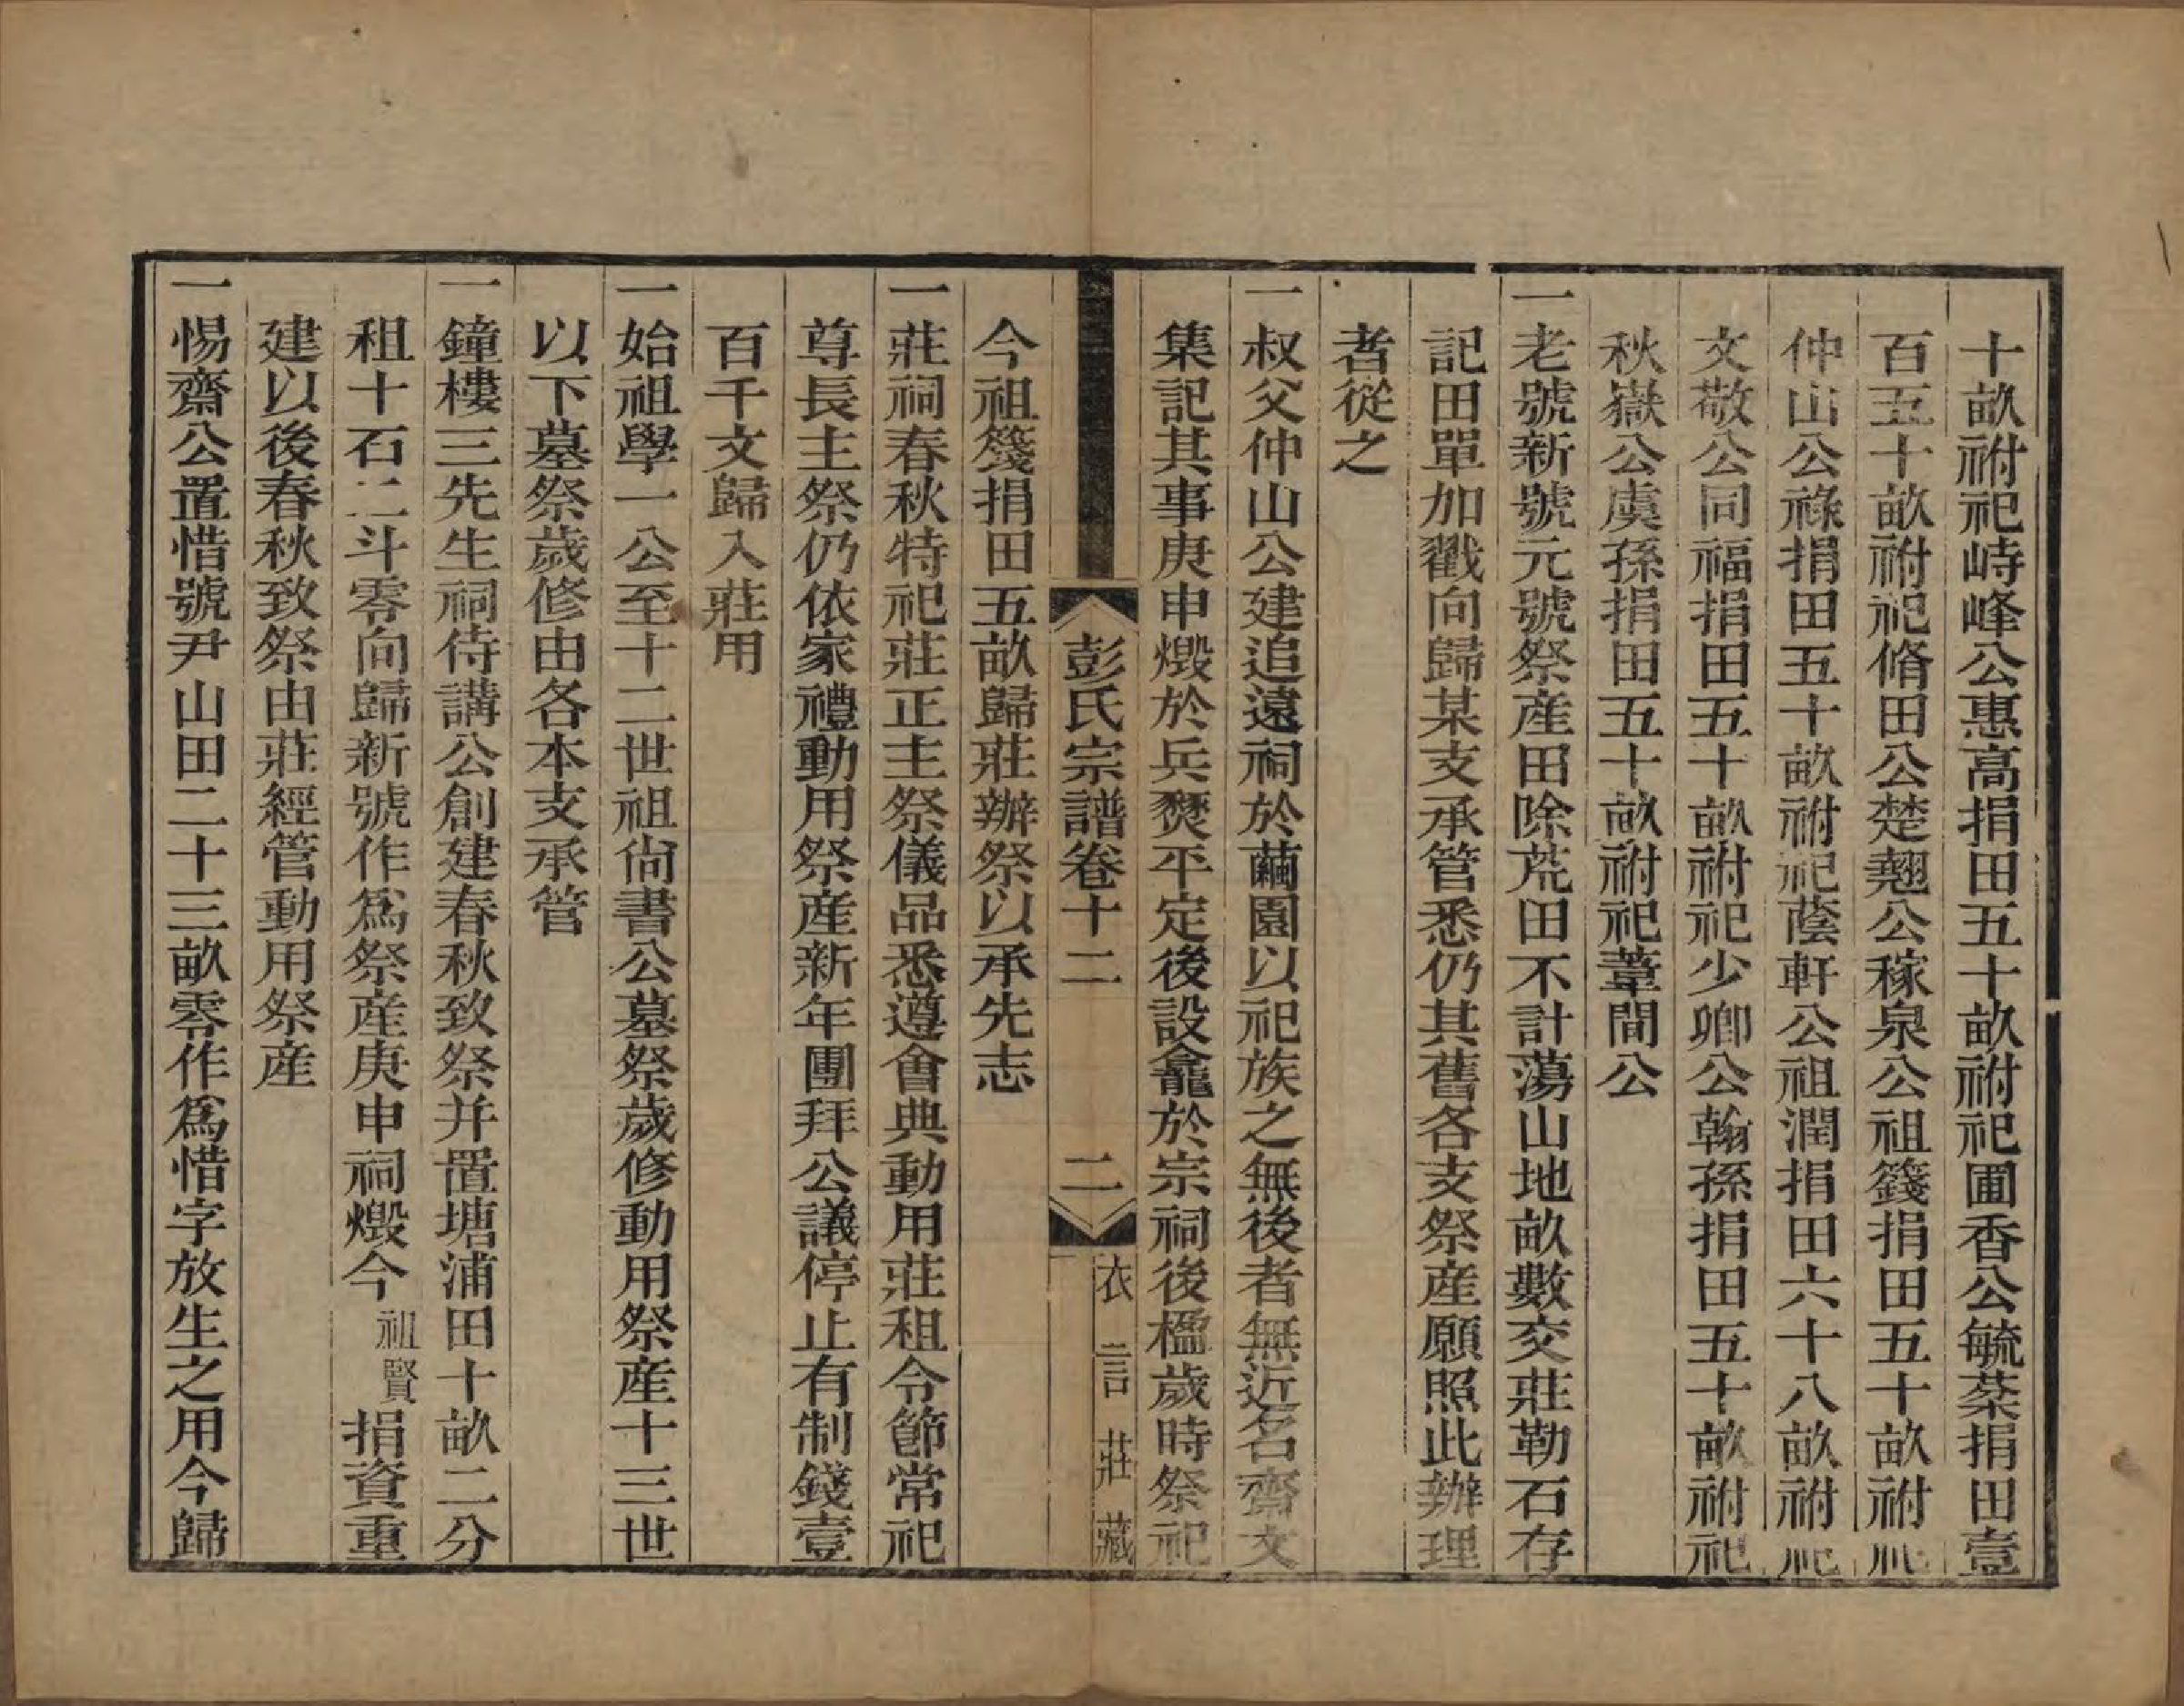 十畝祔祀峙峰公惠高捐田五十畝祔祀圃香公毓棻捐田壹
百五十畝祔祀脩田公楚翹公稼泉公祖籛捐田五十畝祔祀
仲山公祿捐田五十畝祔祀蔭軒公祖潤捐田六十八畝祔祀
文敬公同福捐田五十畝祔祀少卿公翰孫捐田五十畝祔祀
秋嶽公虞孫捐田五十畝祔祀葦間公
一老號新號元號祭產田除荒田不計蕩山地畝數交莊勒石存
記田單加戳向歸某支承管悉仍其舊各支祭產願照此辦理
者從之
一叔父仲山公建追遠祠於繭園以祀族之無後者無近名齋文
集記其事庚申燬於兵燹平定後設龕於宗祠後楹歲時祭祀
今祖籛捐田五畝歸莊辦祭以承先志
彭氏宗譜卷十二 二 衣言莊藏
一莊祠春秋特祀莊正主祭儀品悉遵會典動用莊租令節常祀
尊長主祭仍依家禮動用祭產新年團拜公議停止有制錢壹
百千文歸入莊用
一始祖學一公至十二世祖尙書公墓祭歲修動用祭產十三世
以下墓祭歲修由各本支承管
一鐘樓三先生祠侍講公創建春秋致祭并置塘浦田十畝二分
租十石二斗零向歸新號作爲祭產庚申祠燬今祖賢捐資重
建以後春秋致祭由莊經管動用祭產
一惕齋公置惜號尹山田二十三畝零作爲惜字放生之用今歸